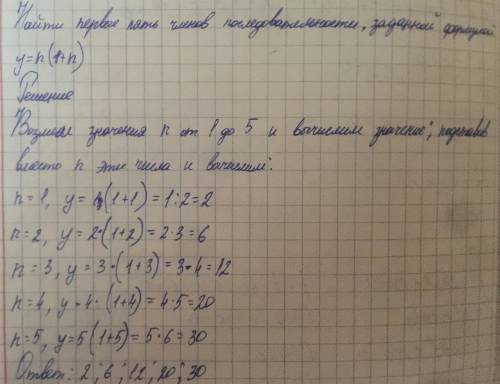 Найти первое пять членов последовательности, заданной формулой
y=n(1+n)
Решение
Возьмём значения n от 1 до 5 и вычислим значение, подставив
вместо n эти числа и вычислим:
n=1, y=1(1+1)=1:2=2
n=2, y=2·(1+2)=2·3=6
n=3, y=3·(1+3)=3·4=12
n=4, y=4·(1+4)=4·5=20
n=5, y=5(1+5)=5·6=30
Ответ: 2; 6; 12; 20; 30